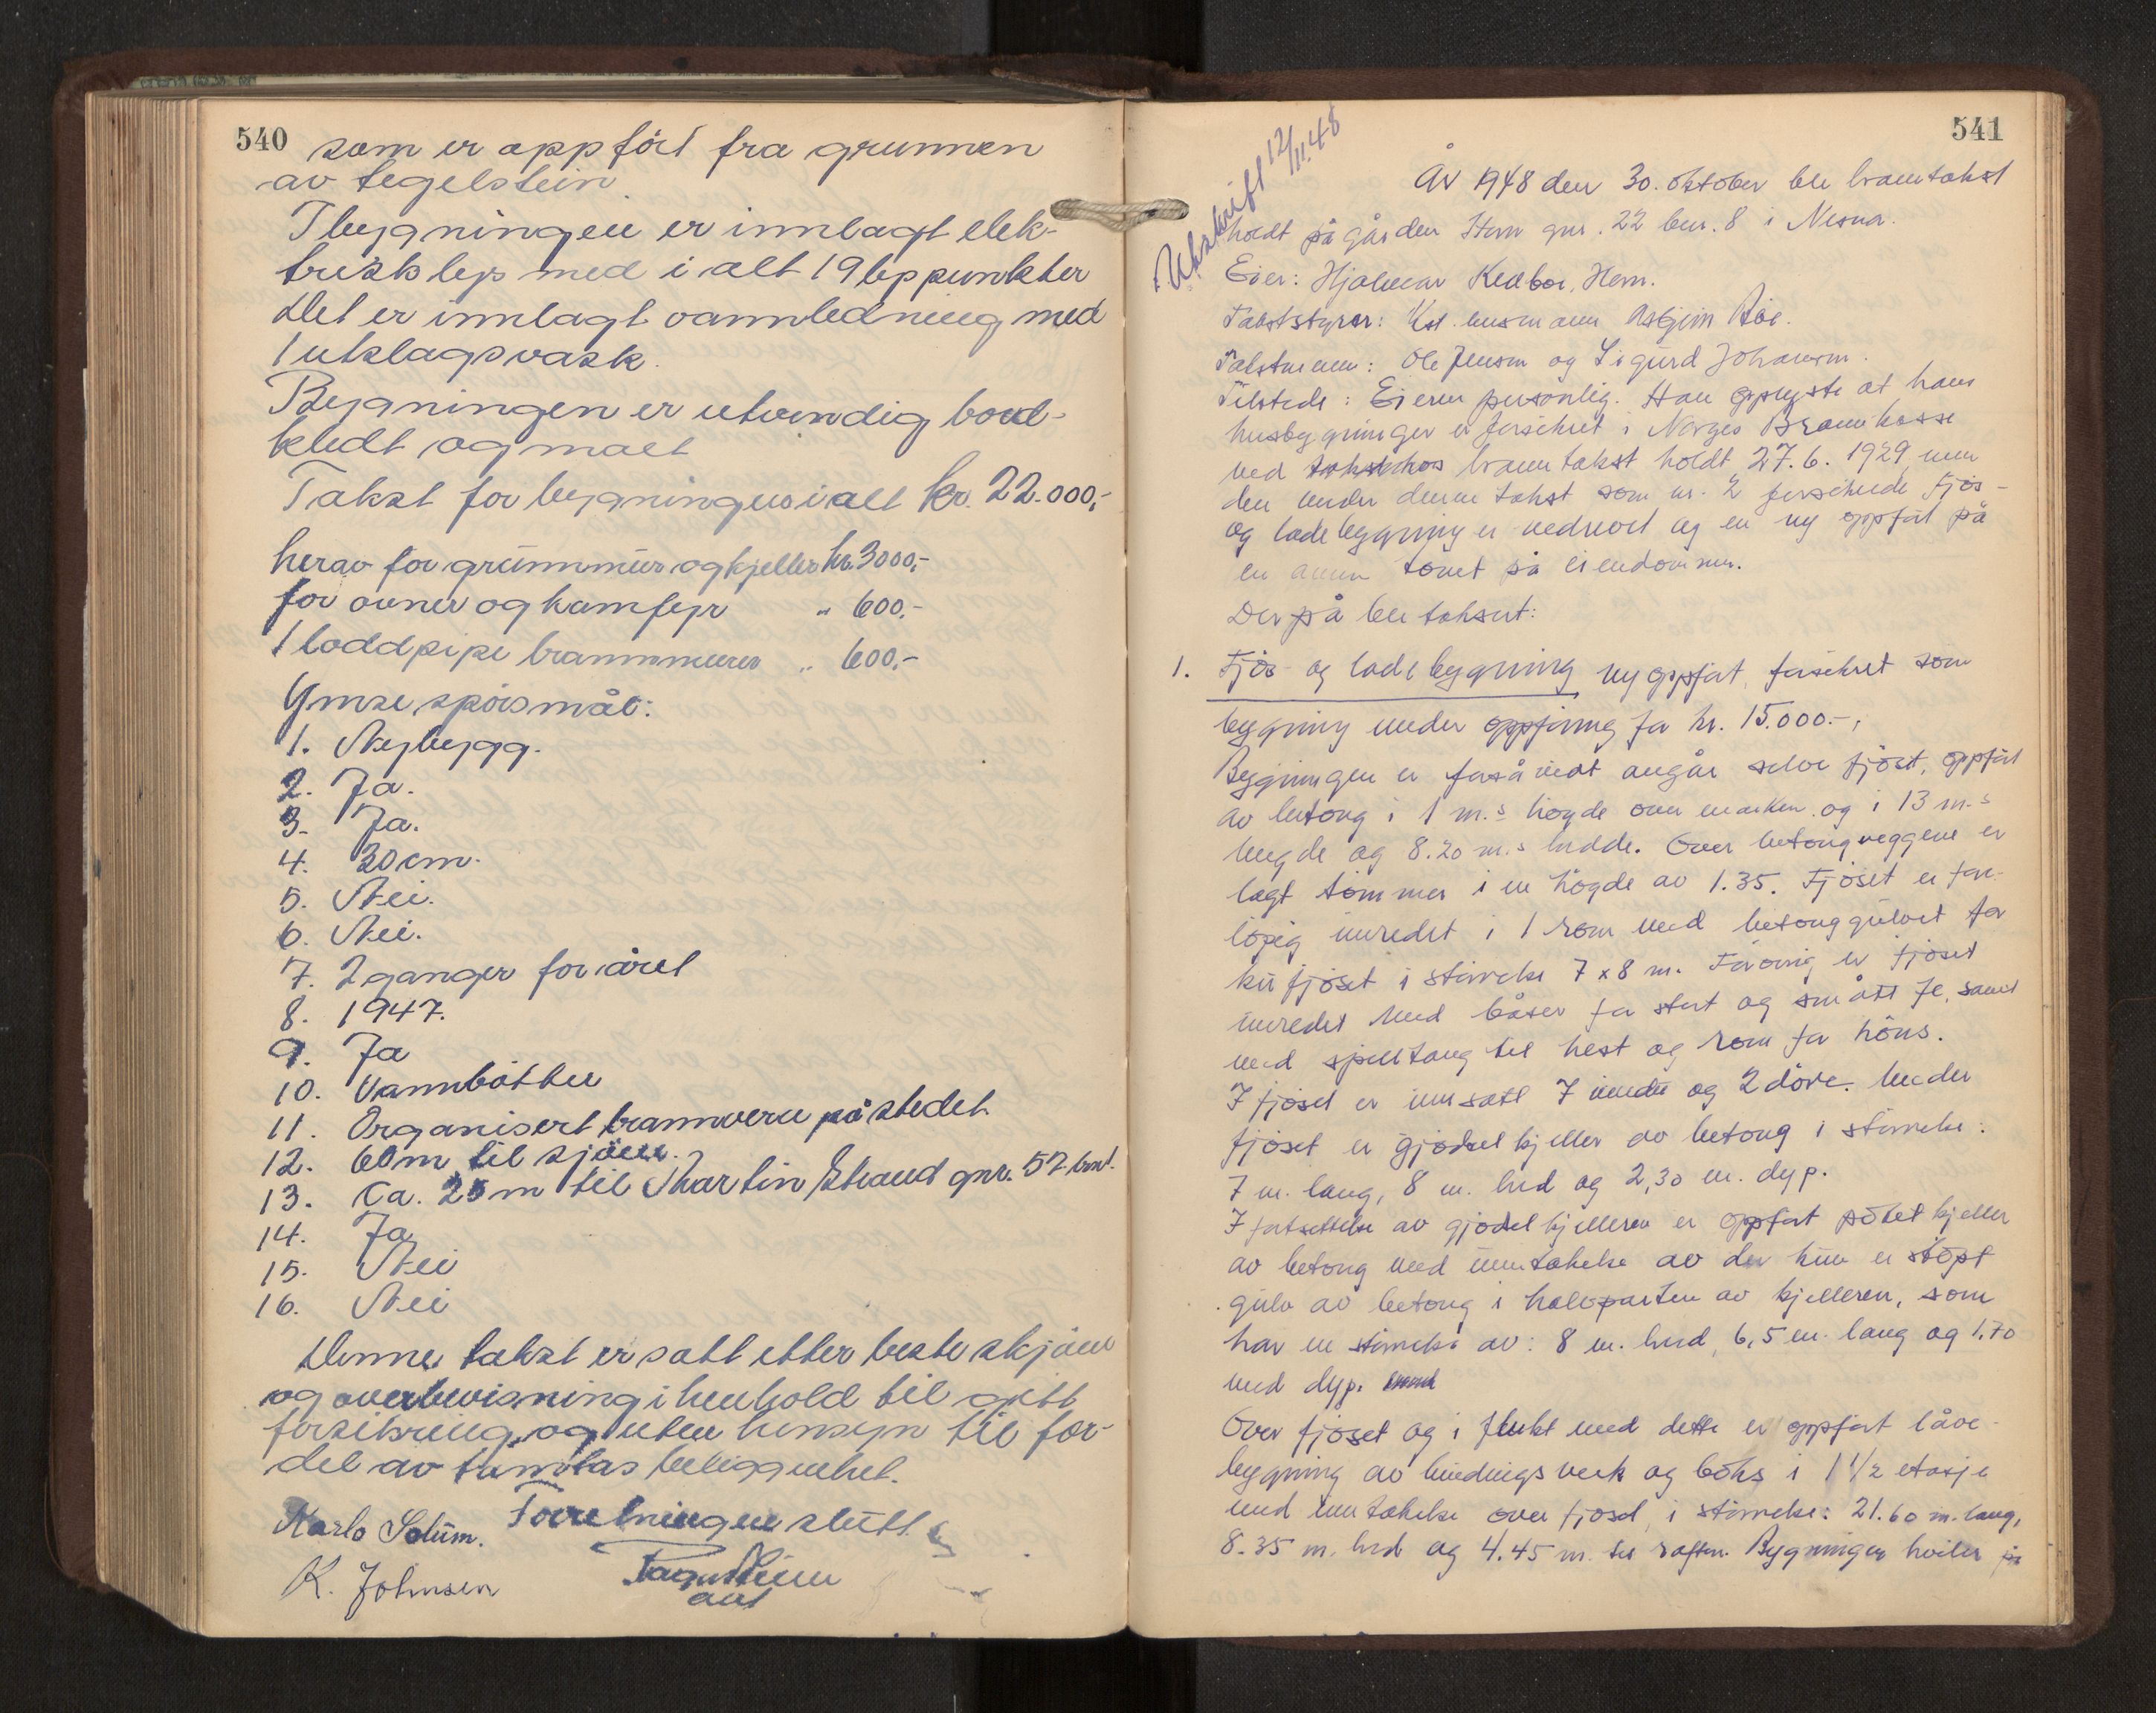 540
som er oppført fra grunnen
av tegelstein.
I bygningen er innlagt elek-
trisk lys med i alt 19 lyspunkter
Det er innlagt vannledning med
1 utslagsvask.
Bygningen er utvendig bord-
kledt og malt
Takst for bygningen i alt kr. 22.000,-
herav for grunnmur og kjeller kr. 3000,-
for ovner og kamfyr " 600,-
1 loddpipe brannmurer " 600,-
Ymse spörsmål:
1. Nybygg.
2. Ja.
3. Ja.
4. 30 cm.
5. Nei.
6. Nei.
7. 2 ganger for året
8. 1947.
9. Ja
10. Vannbøtter
11. Organisert brannvern på stedet
12. 60 m til sjöen.
13. Ca. 25 m til Martin Strand gnr. 57 bnr.
14. Ja
15. Nei
16. Nei
Denne takst er satt etter beste skjönn
og overbevisning i henhold til gitt
forsikring og uten hensyn til for-
del av tomtas beliggenhet.
Forretningen slutt
Karlo Solum.
K. Johnsen
541
Utskrift 12/11.48
År 1948 den 30. oktober ble branntakst
holdt på gården Hem gnr. 22 bnr. 8 i Nesna.
Eier: Hjalmar Hem.
Takststyrer: Kst. lensmann Asbjørn
Takstmenn: Ole Jensen og Sigurd Johansen.
Tilstede: Eieren personlig. Han opplyste at hans
husbygninger er forsikret i Norges Brannkasse
ved branntakst holdt 27.6. 1929, men
den under denne takst som nr. 2 forsikrede fjøs-
og ladebygning er nedrevet og en ny oppført på
en annen tomt på eiendommen.
Derpå ble taksert:
1. Fjøs- og ladebygning nyoppført, forsikret som
bygning under oppføring for kr. 15.000.-,
Bygningen er forsåvidt angår selve fjøset, oppført
av betong i 1 m.s høgde over marken og i 13 m.s
lengde og 8.20 m.s bredde. Over betongveggene er
lagt tömmer i en høgde av 1.35. Fjöset er for-
löpig innredet i 1 rom med betonggulvet for
kufjøset i störrelse 7 x 8 m. Forövrig er fjøset
innredet med båser for stort og smått fe, samt
med spilltaug til hest og rom for höns.
I fjøset er innsatt 7 vindu og 2 döre. Under
fjøset er gjødselkjeller av betong i störrelse:
7 m. lang, 8 m. bred og 2,30 m. dyp.
I fortsettelse av gjødselkjelleren er oppført potetkjeller
av betong med unntakelse av der kun er stöpt
gulv av betong i halvparten av kjelleren, som
har en störrelse av: 8 m. bred, 6,5 m. lang og 1.70
med dyp.
Over fjøset og i flukt med dette er oppført låve-
bygning av bindingsverk og boks i 1 1/2 etasje
med unntakelse over fjøset, i störrelse: 21.60 m. lang,
8.35 m. bred og 4.45 m. til raften. Bygningen hviler på